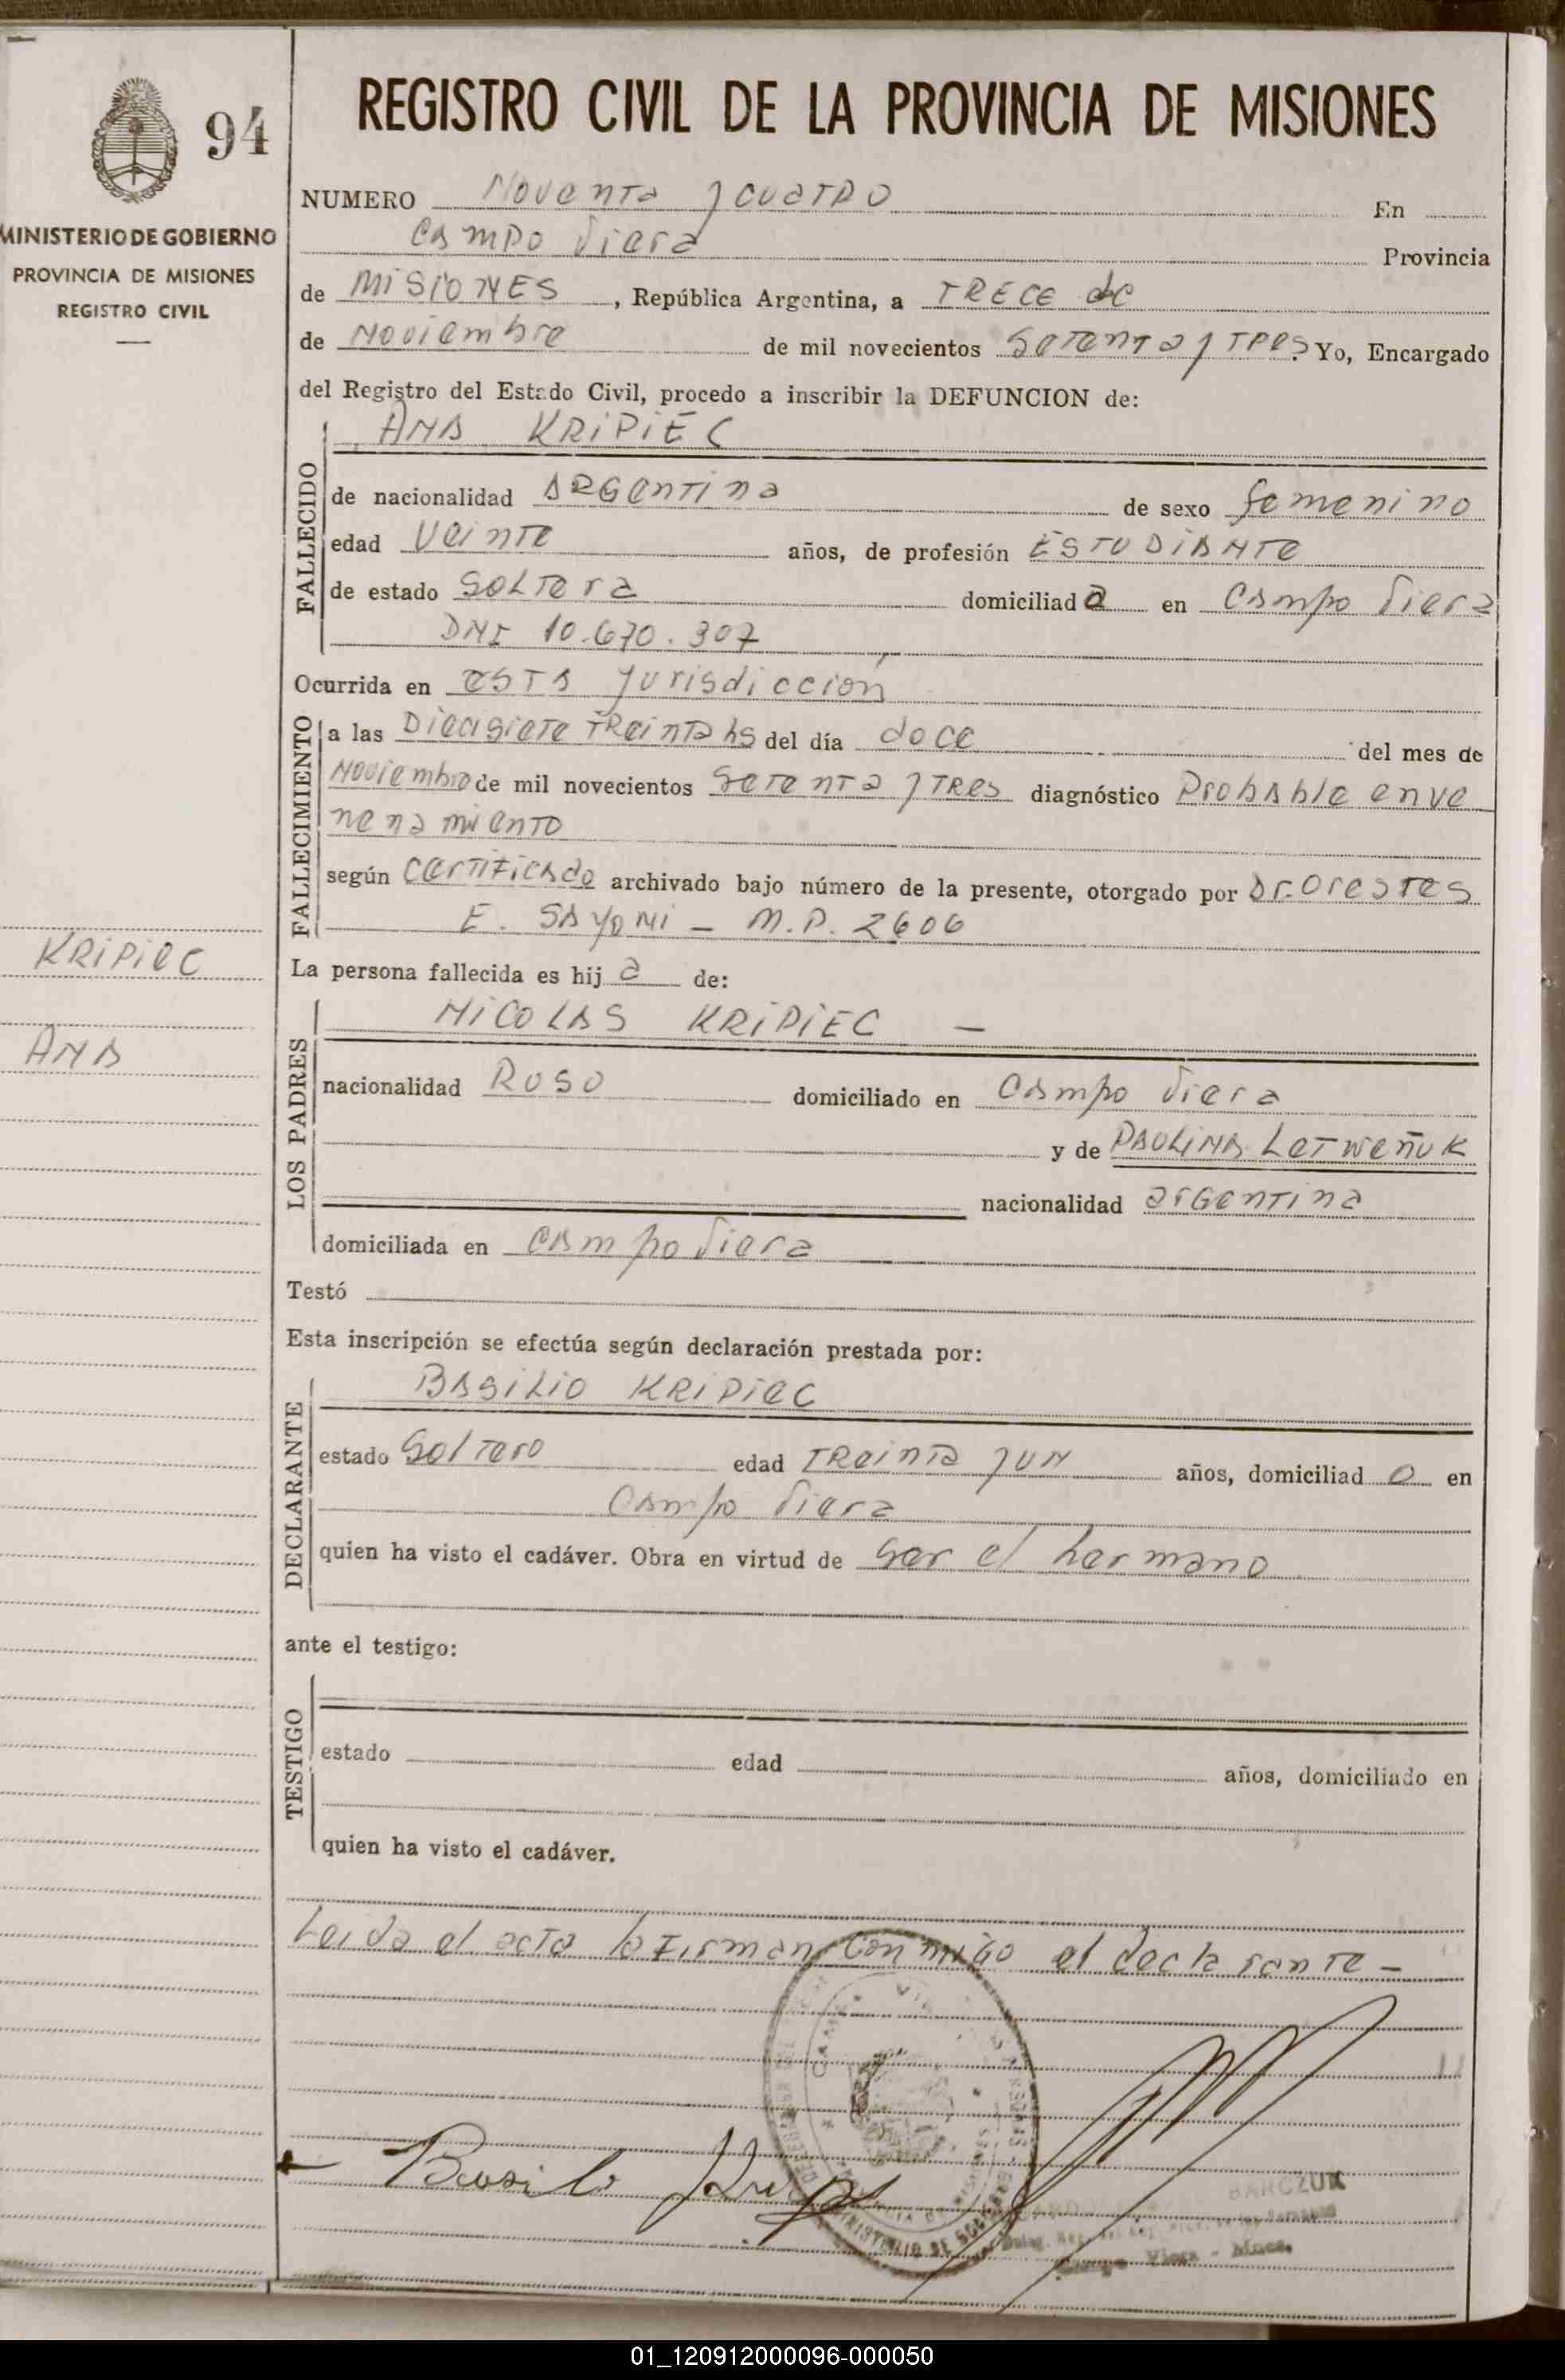 94
MINISTERIO DE GOBIERNO
PROVINCIA DE MISIONES
REGISTRO CIVIL
KRiPiec
ANA
REGISTRO CIVIL DE LA PROVINCIA DE MISIONES
NUMERO Noventa y cuatro En
Campo Viera Provincia
de MiSiONES, República Argentina, a TRECE de
de Noviembre de mil novecientos Setenta y Tres. Yo, Encargado
del Registro del Estado Civil, procedo a inscribir la DEFUNCION de:
ANA KRiPiEC
FALLECIDO
de nacionalidad ARGentina de sexo femenino
edad Veinte años, de profesión ESTUDiANTe
de estado SOLTera domiciliada en Campo Viera
DNI 10.670.307
Ocurrida en esta Jurisdicción
FALLECIMIENTO
a las Diecisiete Treinta hs del día doce del mes de
Noviembre de mil novecientos Setenta y Tres diagnóstico Probable enve
nenamiento
según Certificado archivado bajo número de la presente, otorgado por Dr. Orestes
E. SAyoNi - M.P. 2606
La persona fallecida es hija de:
LOS PADRES
NiCOLAS KRiPiEC -
nacionalidad Ruso domiciliado en Campo Viera
y de PAULiNA LeTWeñUK
nacionalidad argentina
domiciliada en Campo Viera
Testó
Esta inscripción se efectúa según declaración prestada por:
DECLARANTE
BASiLiO KRiPiec
estado Soltero edad TReinta y UN años, domiciliado en
Campo Viera
quien ha visto el cadáver. Obra en virtud de Ser el hermano
ante el testigo:
TESTIGO
estado edad años, domiciliado en
quien ha visto el cadáver.
Leida el acta la Firman Conmigo el declarante -
Basilo
BARCZUK
Viera - Mnes.
01_120912000096-000050